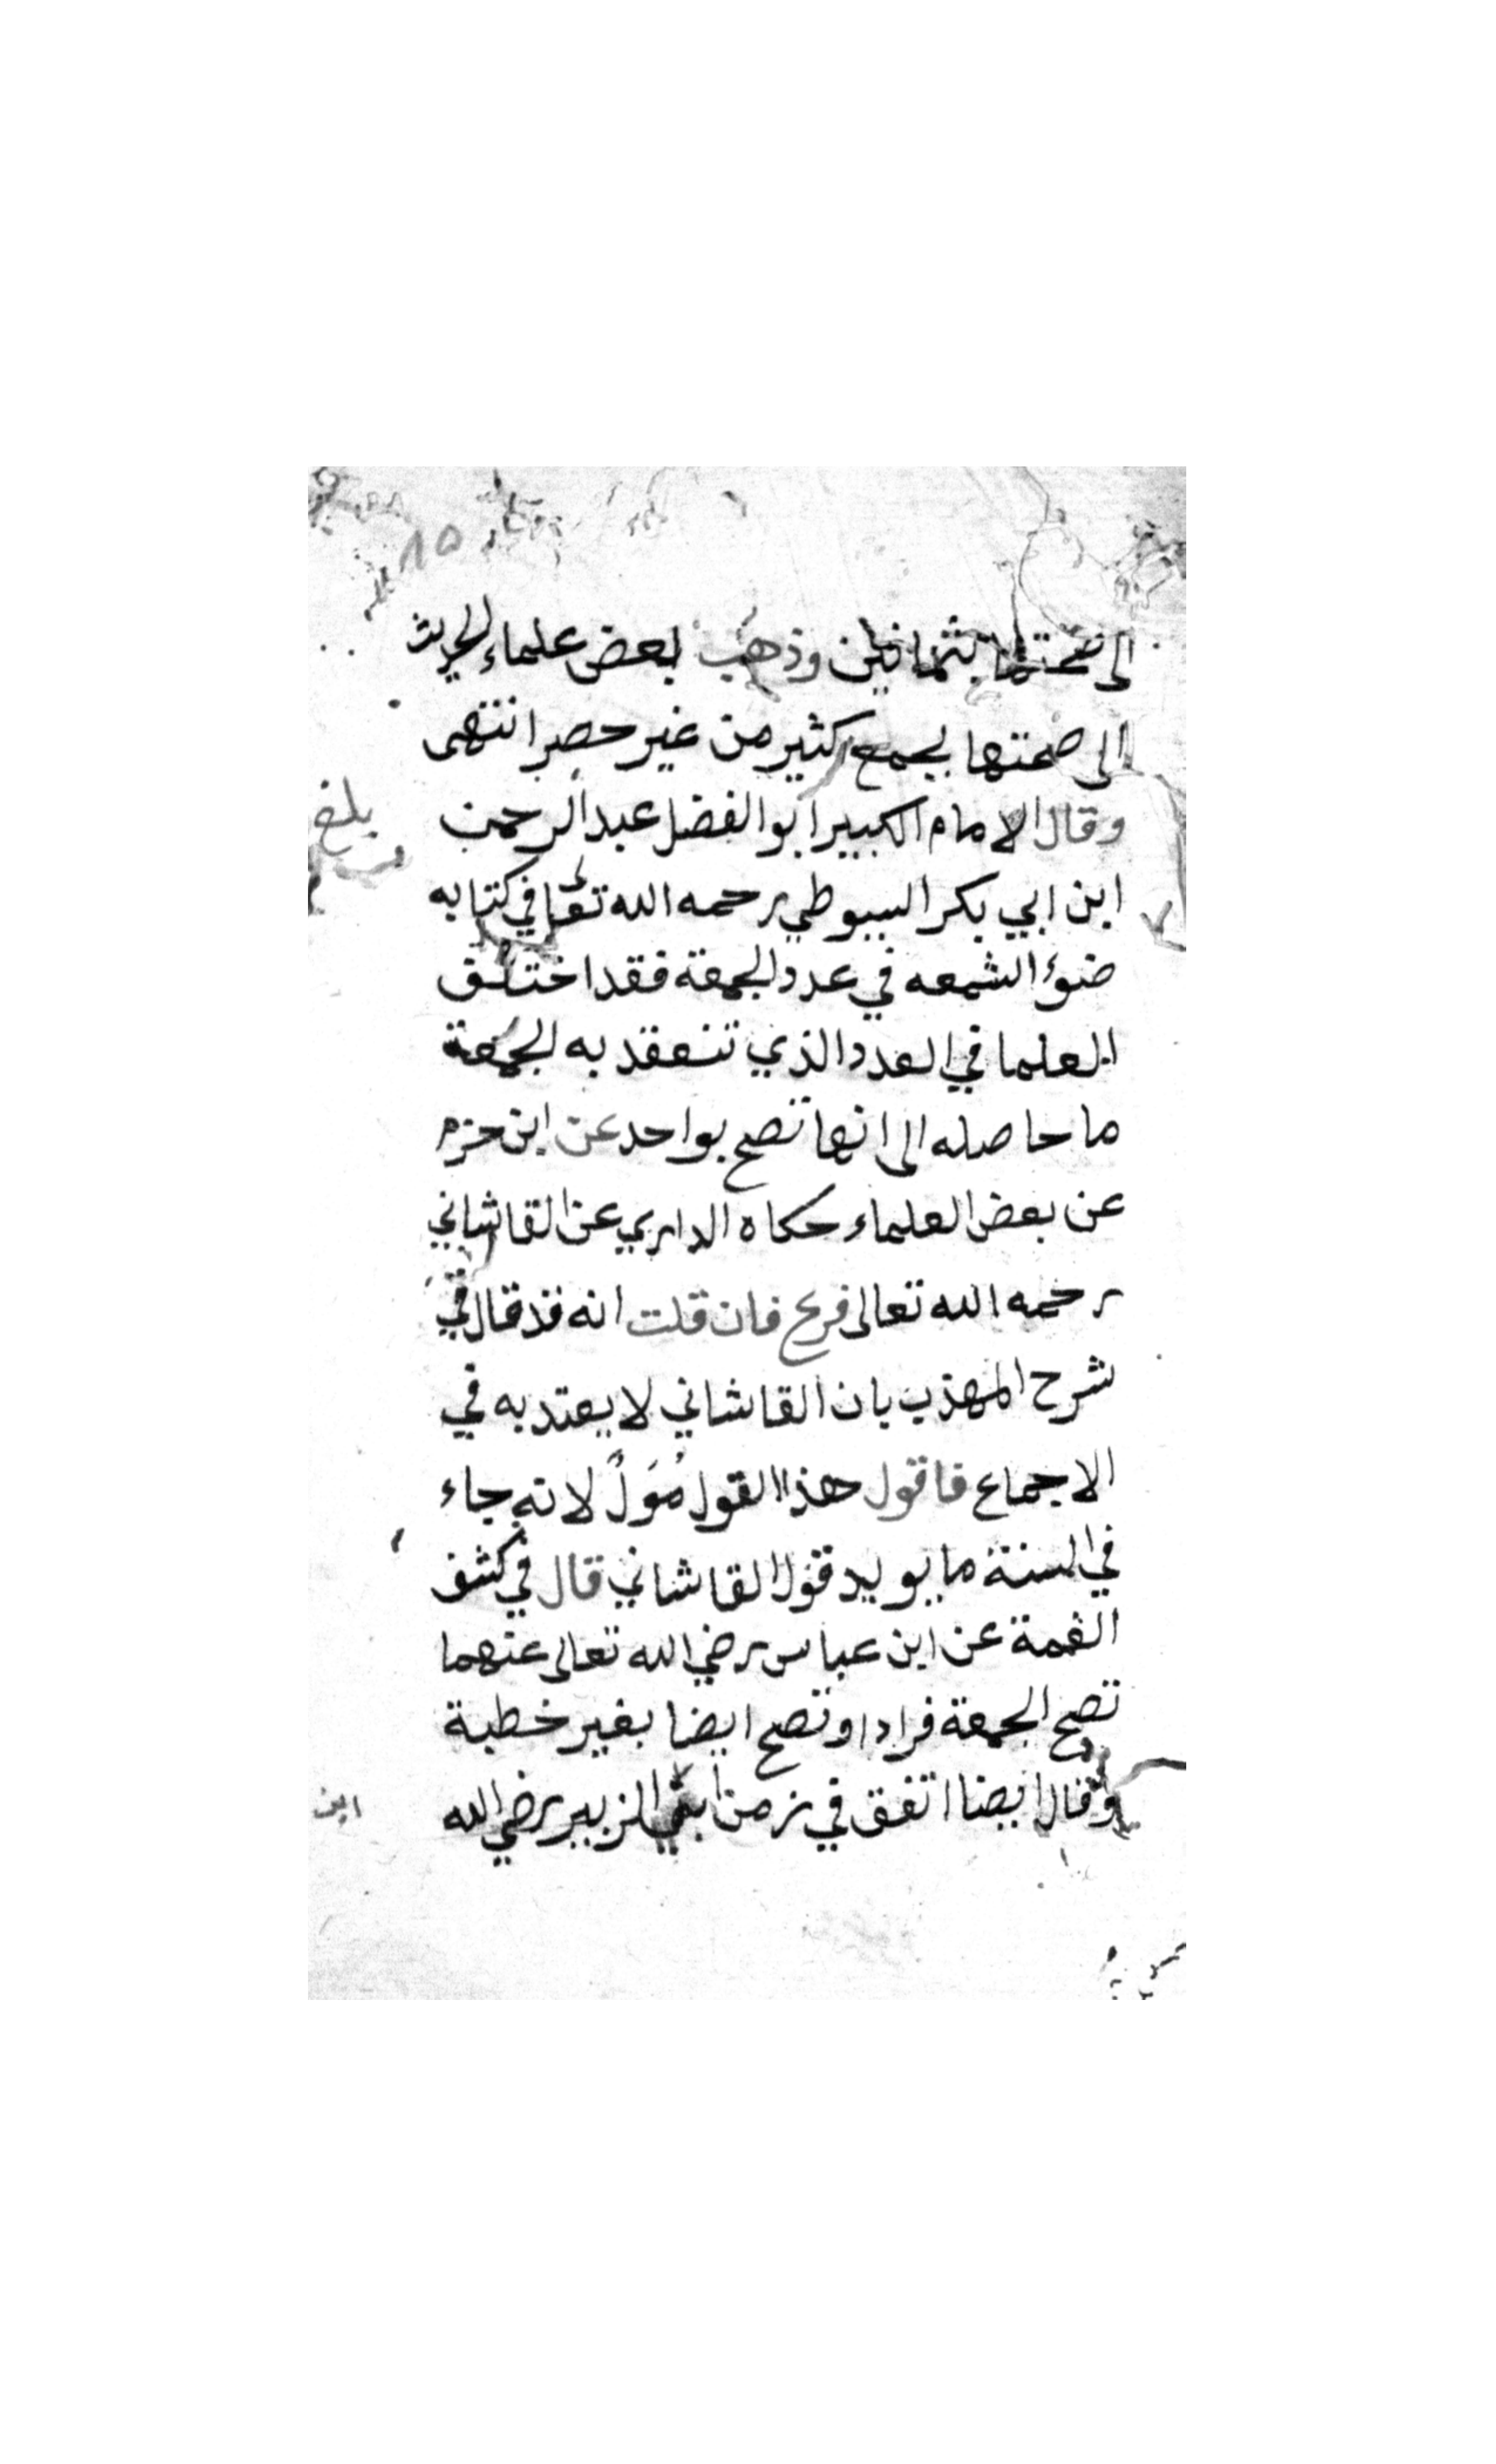 ٨٥
الى صحتها بثمانين وذهب بعض علماء الحديث
الى صحتها بجمع كثير من غير حصر انتهى
وقال الامام الكبير ابو الفضل عبد الرحمن
ابن ابي بكر السيوطي رحمه الله تعا في كتابه
ضوؤ الشمعه في عدد الجمعة فقد اختلف
العلما في العدد الذي تنعقد به الجمعة
ما حاصله الى انها تصح بواحد عن ابن حزم
عن بعض العلماء حكاه الدارمي عن القاشاني
رحمه الله تعالى فرع فان قلت انه قد قال في
شرح المهذب بان القاشاني لا يعتد به في
الاجماع فاقول هذا القول مُوَلٌ لانه جاء
في السنة ما يويد قول القاشاني قال في كشف
الغمة عن ابن عباس رضي الله تعالى عنهما
تصح الجمعة فرادا وتصح ايضا بغير خطبة
وقال ايضا اتفق في زمن ابن الزبير رضي الله
بلغ
ابن